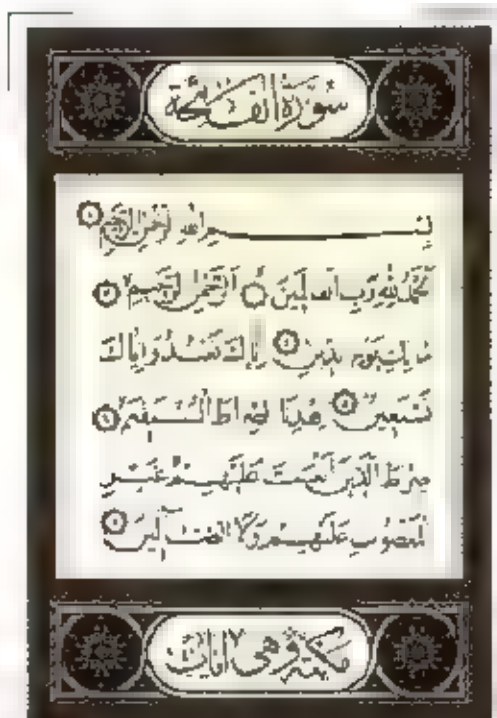 سورة الفاتحة
بسم الله الرحمن الرحيم ١
الحمد لله رب العالمين ٢ الرحمن الرحيم ٣
ملك يوم الدين ٤ إياك نعبد وإياك
نستعين ٥ اهدنا الصراط المستقيم ٦
صراط الذين أنعمت عليهم غير
المغضوب عليهم ولا الضالين ٧
مكية وهي ٧ آيات